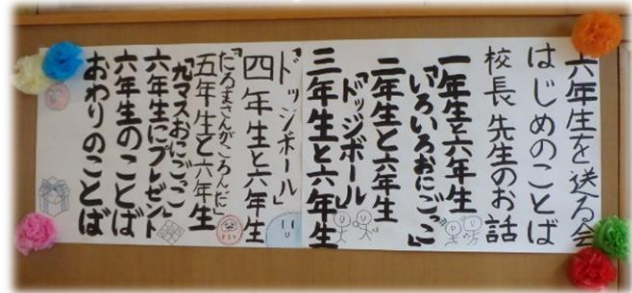 六年生を送る会
はじめのことば
校長先生のお話
一年生と六年生
「いろいろおにごっこ」
二年生と六年生
「ドッジボール」
三年生と六年生
「ドッジボール」
四年生と六年生
「だるまさんがころんだ」
五年生と六年生
「九マスおにごっこ」
六年生にプレゼント
六年生のことば
おわりのことば